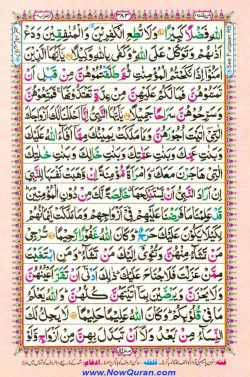 ٣٨٣
اللّٰهِ فَضْلًا كَبِیْرًا وَلَا تُطِعِ الْكٰفِرِیْنَ وَالْمُنٰفِقِیْنَ وَدَعْ
اَذٰىهُمْ وَتَوَكَّلْ عَلَى اللّٰهِ وَكَفٰى بِاللّٰهِ وَكِیْلًا یٰۤاَیُّهَا الَّذِیْنَ
اٰمَنُوْۤا اِذَا نَكَحْتُمُ الْمُؤْمِنٰتِ ثُمَّ طَلَّقْتُمُوْهُنَّ مِنْ قَبْلِ اَنْ
تَمَسُّوْهُنَّ فَمَا لَكُمْ عَلَیْهِنَّ مِنْ عِدَّةٍ تَعْتَدُّوْنَهَا فَمَتِّعُوْهُنَّ
وَسَرِّحُوْهُنَّ سَرَاحًا جَمِیْلًا یٰۤاَیُّهَا النَّبِیُّ اِنَّاۤ اَحْلَلْنَا لَكَ اَزْوَاجَكَ
الّٰتِیْۤ اٰتَیْتَ اُجُوْرَهُنَّ وَمَا مَلَكَتْ یَمِیْنُكَ مِمَّاۤ اَفَآءَ اللّٰهُ عَلَیْكَ
وَبَنٰتِ عَمِّكَ وَبَنٰتِ عَمّٰتِكَ وَبَنٰتِ خَالِكَ وَبَنٰتِ خٰلٰتِكَ
الّٰتِیْ هَاجَرْنَ مَعَكَ وَامْرَاَةً مُّؤْمِنَةً اِنْ وَّهَبَتْ نَفْسَهَا لِلنَّبِیِّ
اِنْ اَرَادَ النَّبِیُّ اَنْ یَّسْتَنْكِحَهَا خَالِصَةً لَّكَ مِنْ دُوْنِ الْمُؤْمِنِیْنَ
قَدْ عَلِمْنَا مَا فَرَضْنَا عَلَیْهِمْ فِیْۤ اَزْوَاجِهِمْ وَمَا مَلَكَتْ اَیْمَانُهُمْ
لِكَیْلَا یَكُوْنَ عَلَیْكَ حَرَجٌ وَكَانَ اللّٰهُ غَفُوْرًا رَّحِیْمًا تُرْجِیْ
مَنْ تَشَآءُ مِنْهُنَّ وَتُـْٔوِیْۤ اِلَیْكَ مَنْ تَشَآءُ وَمَنِ ابْتَغَیْتَ
مِمَّنْ عَزَلْتَ فَلَا جُنَاحَ عَلَیْكَ ذٰلِكَ اَدْنٰۤى اَنْ تَقَرَّ اَعْیُنُهُنَّ
وَلَا یَحْزَنَّ وَیَرْضَیْنَ بِمَاۤ اٰتَیْتَهُنَّ كُلُّهُنَّ وَاللّٰهُ یَعْلَمُ
مَا فِیْ قُلُوْبِكُمْ وَكَانَ اللّٰهُ عَلِیْمًا حَلِیْمًا لَا یَحِلُّ لَكَ
النِّسَآءُ مِنْ بَعْدُ وَلَاۤ اَنْ تَبَدَّلَ بِهِنَّ مِنْ اَزْوَاجٍ وَّلَوْ
www.NowQuran.com